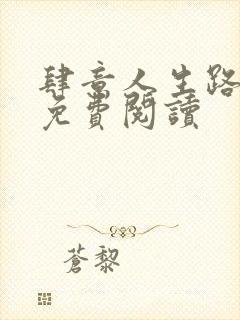 肆意人生路
免費閱讀
蒼黎